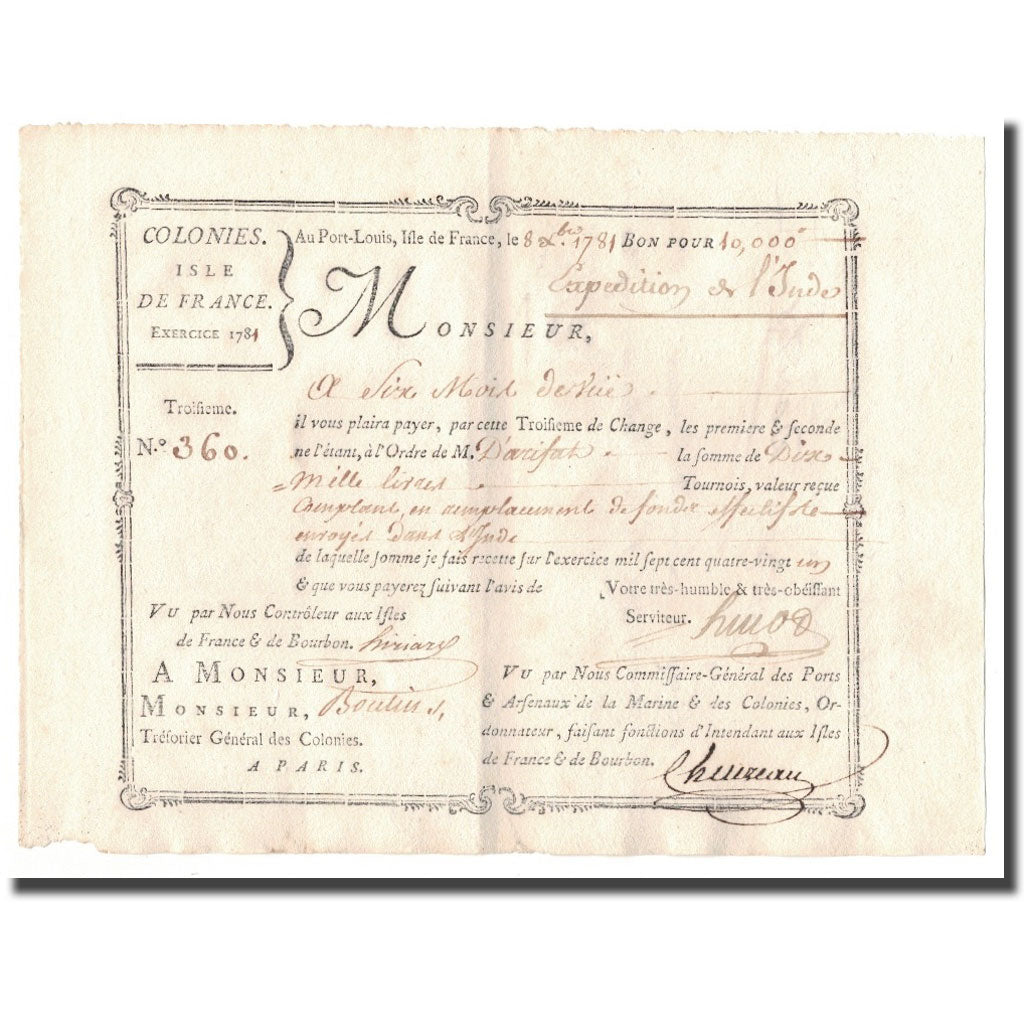 COLONIES.
ISLE
DE FRANCE.
EXERCICE 1781
Au Port-Louis, Isle de France, le 8 Xbre. 1781 BON POUR 10,000
Expedition de l'Inde
MONSIEUR,
A Six Mois de Vüe
Troisieme.
N.º 360.
il vous plaira payer, par cette Troisieme de Change, les premiere & seconde
ne l'étant, à l'Ordre de M. Darifat la somme de Dix
= mille livres Tournois, valeur reçue
Comptant, en remplacement de fonds effectifs
envoyés dans l'Inde
de laquelle somme je fais recette sur l'exercice mil sept cent quatre-vingt un
& que vous payerez suivant l'avis de Votre très-humble & très-obéissant
Serviteur.
VU par Nous Contrôleur aux Isles
de France & de Bourbon.
A MONSIEUR,
MONSIEUR, Boutin,
Trésorier Général des Colonies.
A PARIS.
VU par Nous Commissaire-Général des Ports
& Arsenaux de la Marine & des Colonies, Or-
donnateur, faisant fonctions d'Intendant aux Isles
de France & de Bourbon.
Chevreau